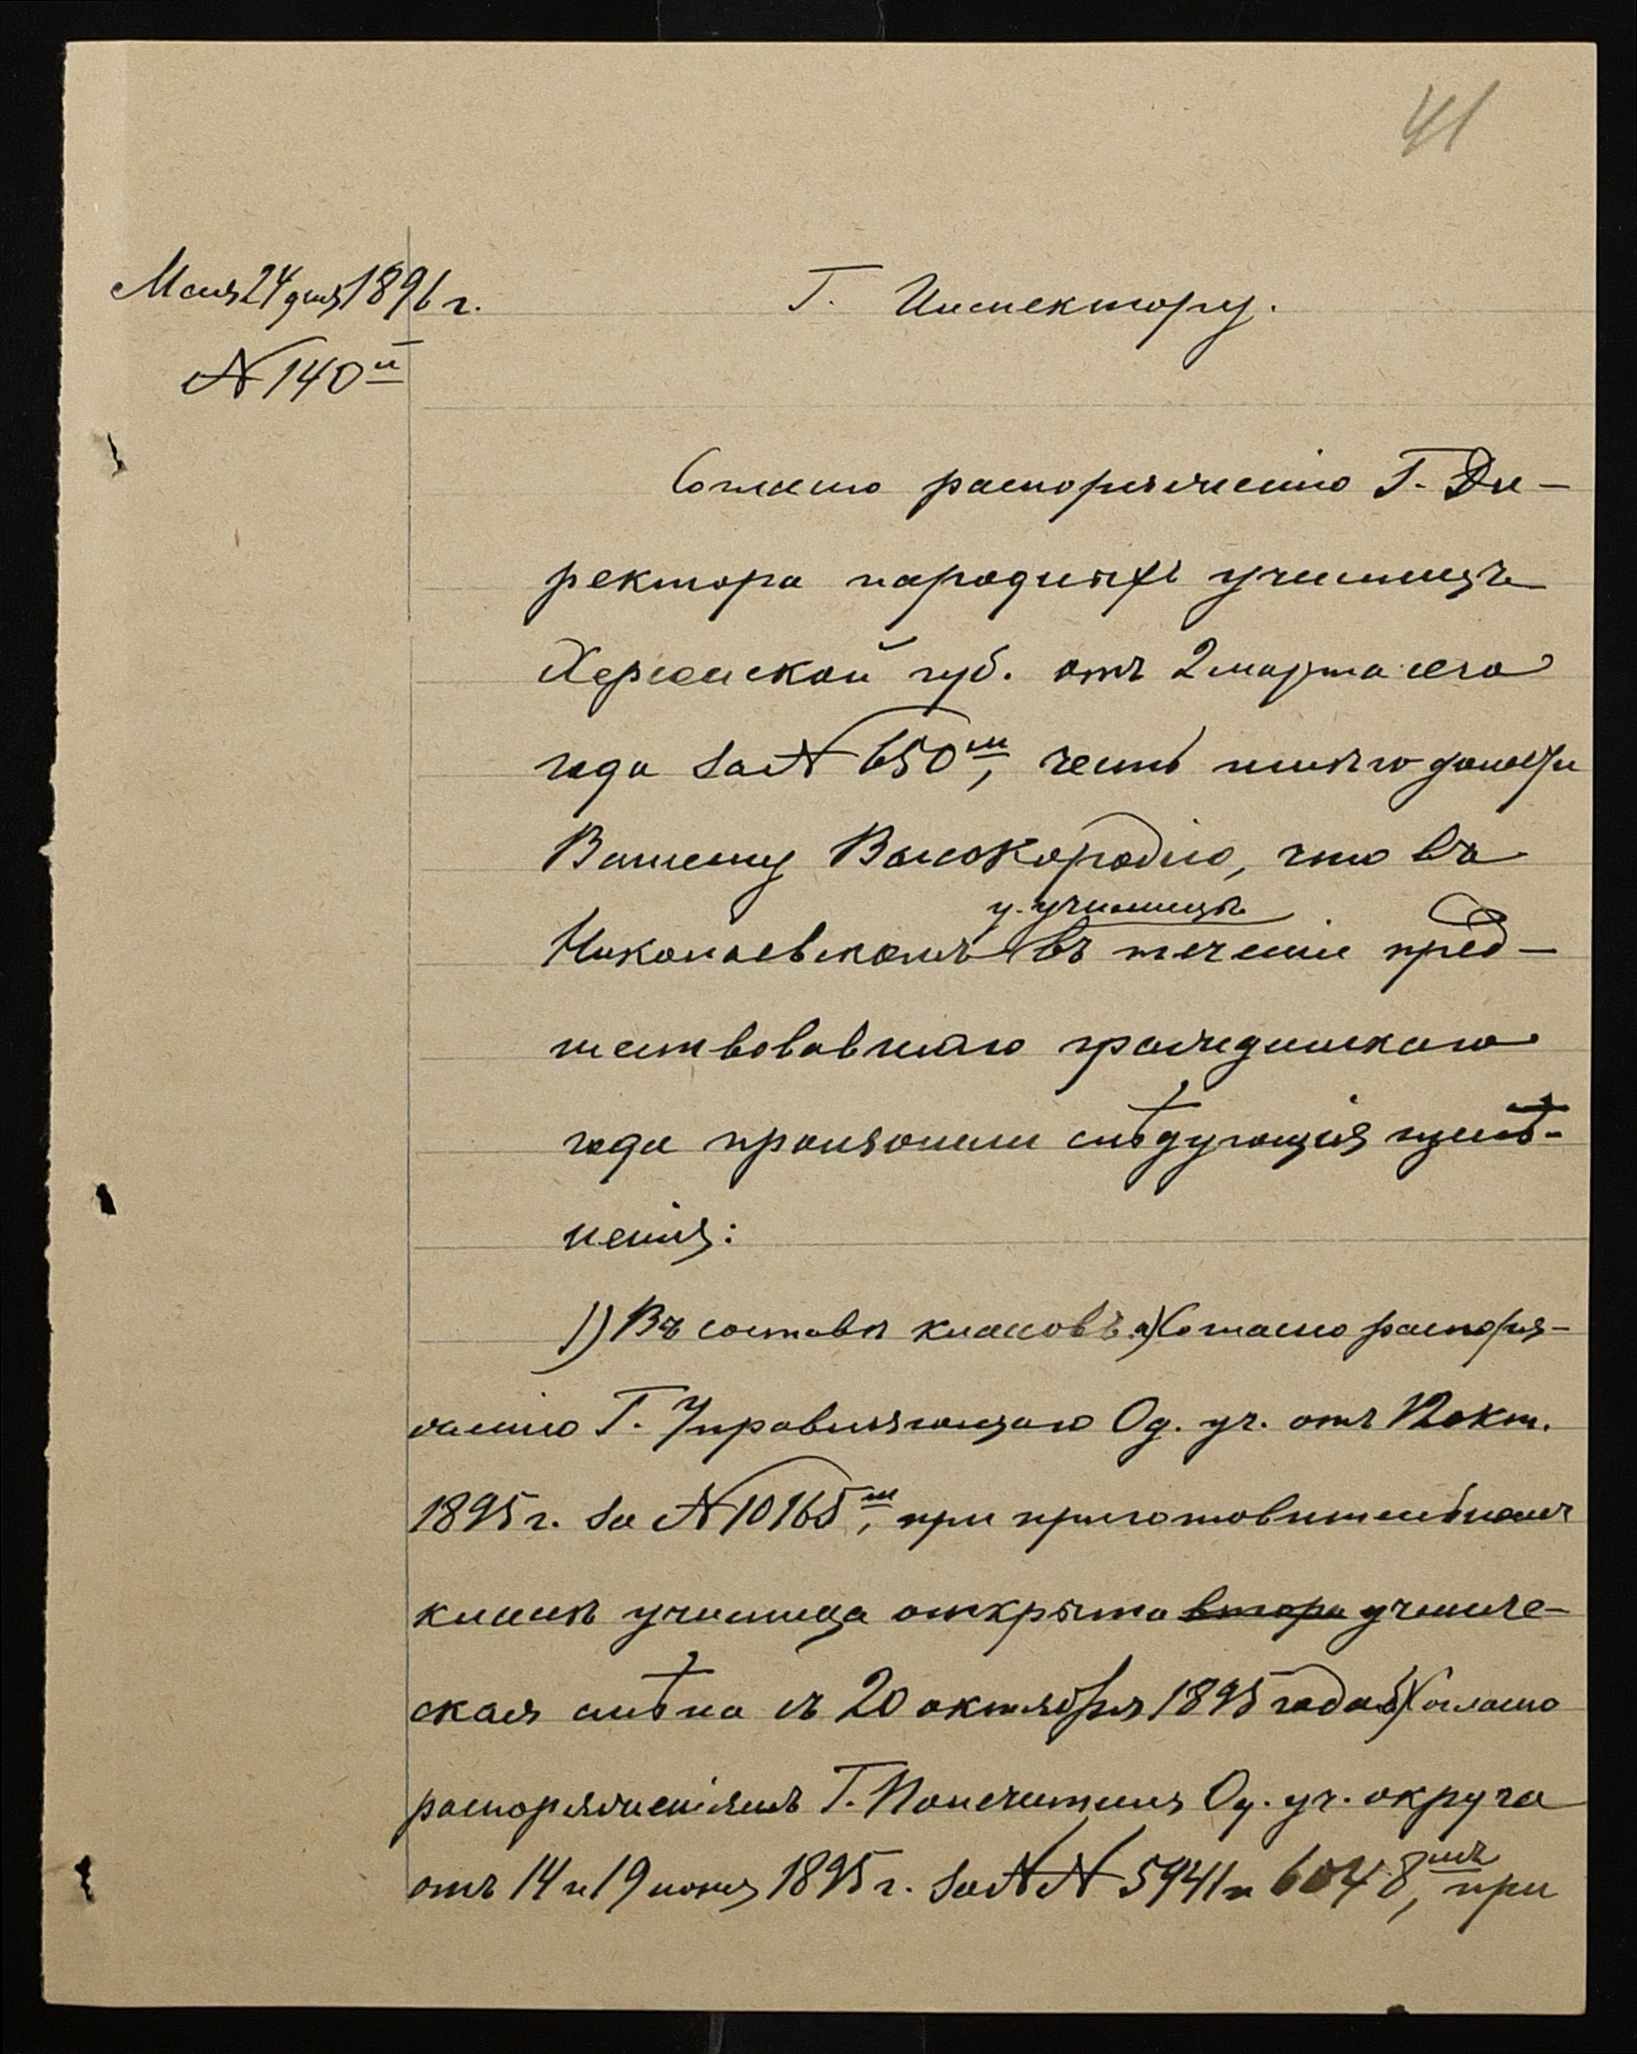 41
Мая 24 дня 1896 г.
№ 140й
Г. Инспектору.
Согласно распоряженію Г. Ди-
ректора народныхъ училищъ
Херсонской губ. отъ 2 марта сего
года за № 650мъ, честь имѣю донести
Вашему Высокородію, что въ
у. училищѣ
Николаевскомъ въ теченіи пред-
шествовавшаго гражданскаго
года произошли слѣдующія измѣ-
ненія:
1) Въ составѣ классовъ. а) Согласно распоря-
женію Г. Управляющаго Од. уч. отъ 12 окт.
1895 г. за № 10165мъ, при приготовительномъ
классѣ училища открыта втора учениче-
ская смѣна съ 20 октября 1895 года б) Согласно
распоряженіямъ Г. Попечителя Од. уч. округа
отъ 14 и 19 іюня 1895 г. за №№ 5941 и 6048мъ, при